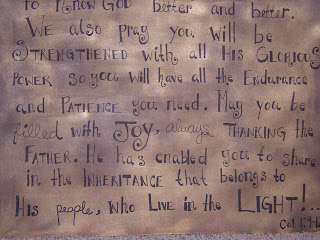 to Know GOD better and better.
WE also pray you will be
STRENGTHENED with all HIS GLORIOUS
POWER so you will have all the Endurance
and PATIENCE you need. May you be
filled with JOY, always THANKING the
FATHER. He has enabled you to share
in the INHERITANCE that belongs to
His people, Who LIVE in the LIGHT!...
Col.